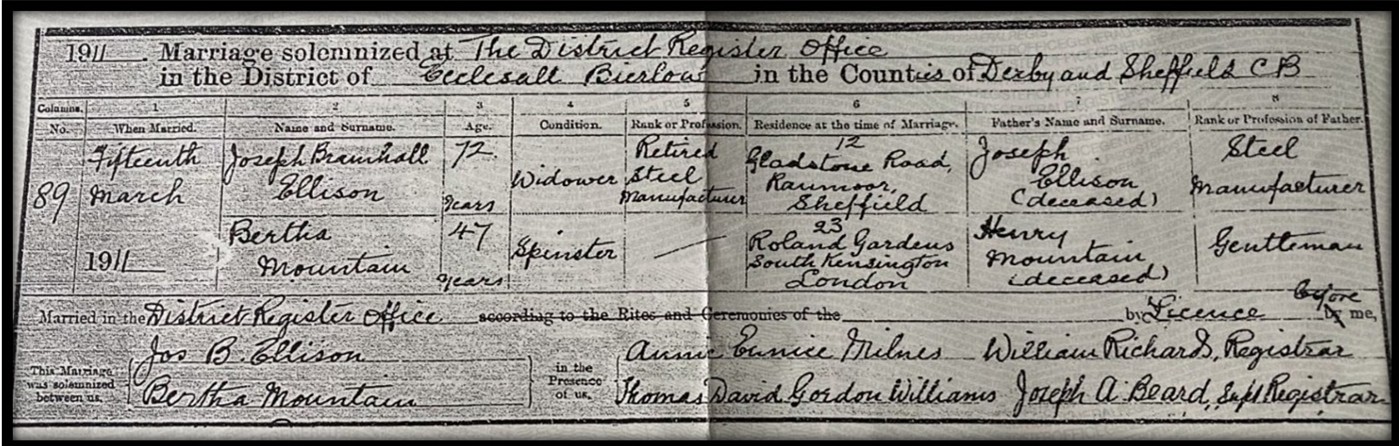 1911. Marriage solemnized at The District Register Office
in the District of Ecclesall Bierlow in the Counties of Derby and Sheffield CB
Columns. 1 2 3 4 5 6 7 8
No. When Married. Name and Surname. Age. Condition. Rank or Profession. Residence at the time of Marriage. Father's Name and Surname. Rank or Profession of Father.
89 Fifteenth March 1911 Joseph Bramhall Ellison 72 years Widower Retired Steel Manufacturer 12 Gladstone Road, Ranmoor, Sheffield Joseph Ellison (deceased) Steel Manufacturer
Bertha Mountain 47 years Spinster 23 Roland Gardens South Kensington London Henry Mountain (deceased) Gentleman
Married in the District Register Office according to the Rites and Ceremonies of the by Licence before by me,
This Marriage was solemnized between us, Jos B. Ellison Bertha Mountain
in the Presence of us, Annie Eunice Milnes Thomas David Gordon Williams
William Richards, Registrar
Joseph A. Beard, Supt Registrar